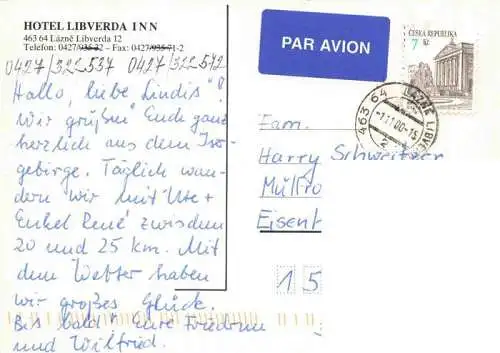 HOTEL LIBVERDA INN
463 64 Lázně Libverda 12
Telefon: 0427/935 22 – Fax: 0427/935 71-2
0427/322 537 0427/322 572
PAR AVION
ČESKÁ REPUBLIKA
7 Kč
463 64 LÁZNĚ LIBVERDA
-7.11.00-15
Hallo, liebe Lindis"!
Wir grüßen Euch ganz
herzlich aus dem Iser-
gebirge. Täglich wan-
dern wir mit Ute +
Enkel René zwischen
20 und 25 km. Mit
dem Wetter haben
wir großes Glück.
Bis bald! Eure Friedrun
und Wilfried.
Fam.
Harry Schweitzer
Müllro
Eisent
15